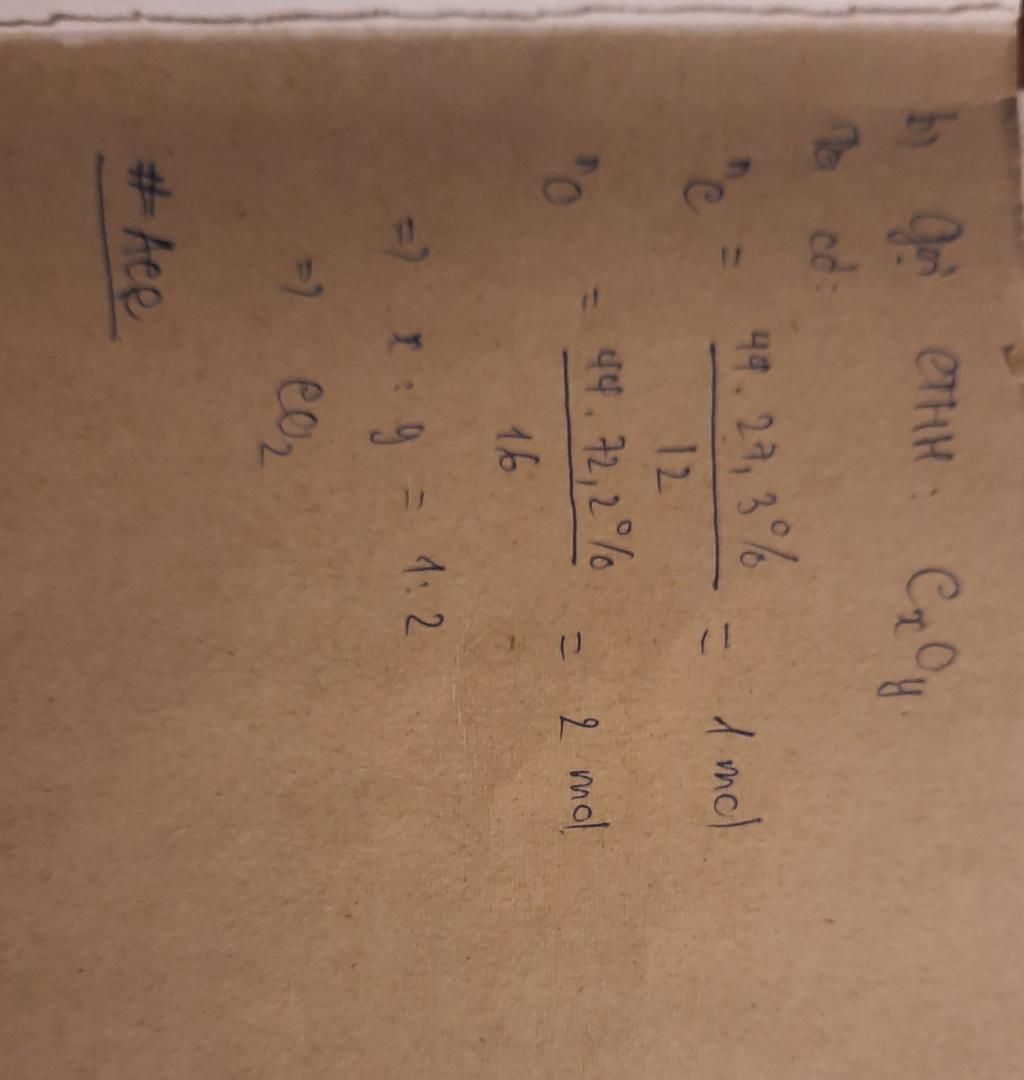 b, Gọi CTHH : CxOy
Ta có:
nC = 44.27,3% / 12 = 1 mol
nO = 44.72,2% / 16 = 2 mol
=> x : y = 1:2
=> CO2